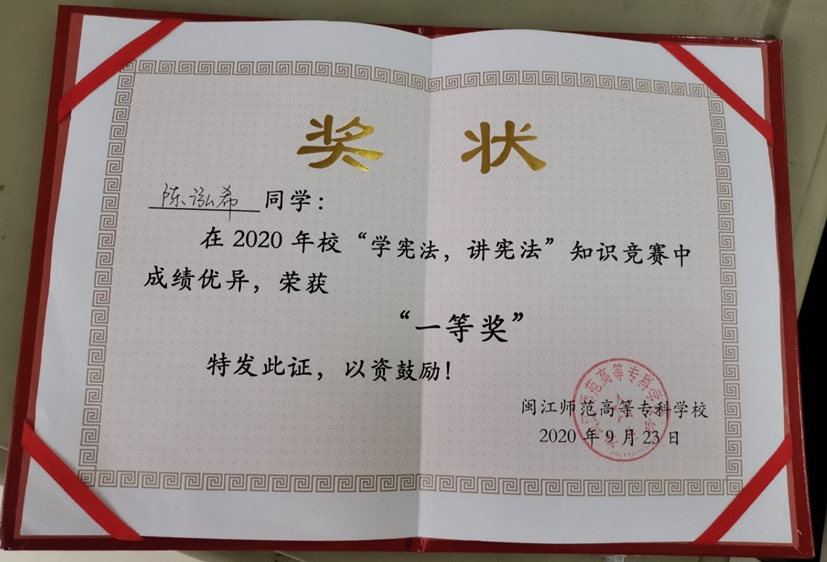 奖状
陈泓希 同学：
在 2020 年校“学宪法，讲宪法”知识竞赛中
成绩优异，荣获
“一等奖”
特发此证，以资鼓励！
闽江师范高等专科学校
2020 年 9 月 23 日